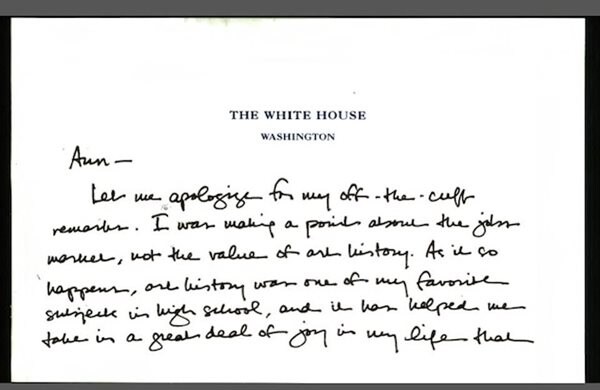 THE WHITE HOUSE
WASHINGTON
Ann —
Let me apologize for my off-the-cuff
remarks. I was making a point about the jobs
market, not the value of art history. As it so
happens, art history was one of my favorite
subjects in high school, and it has helped me
take in a great deal of joy in my life that